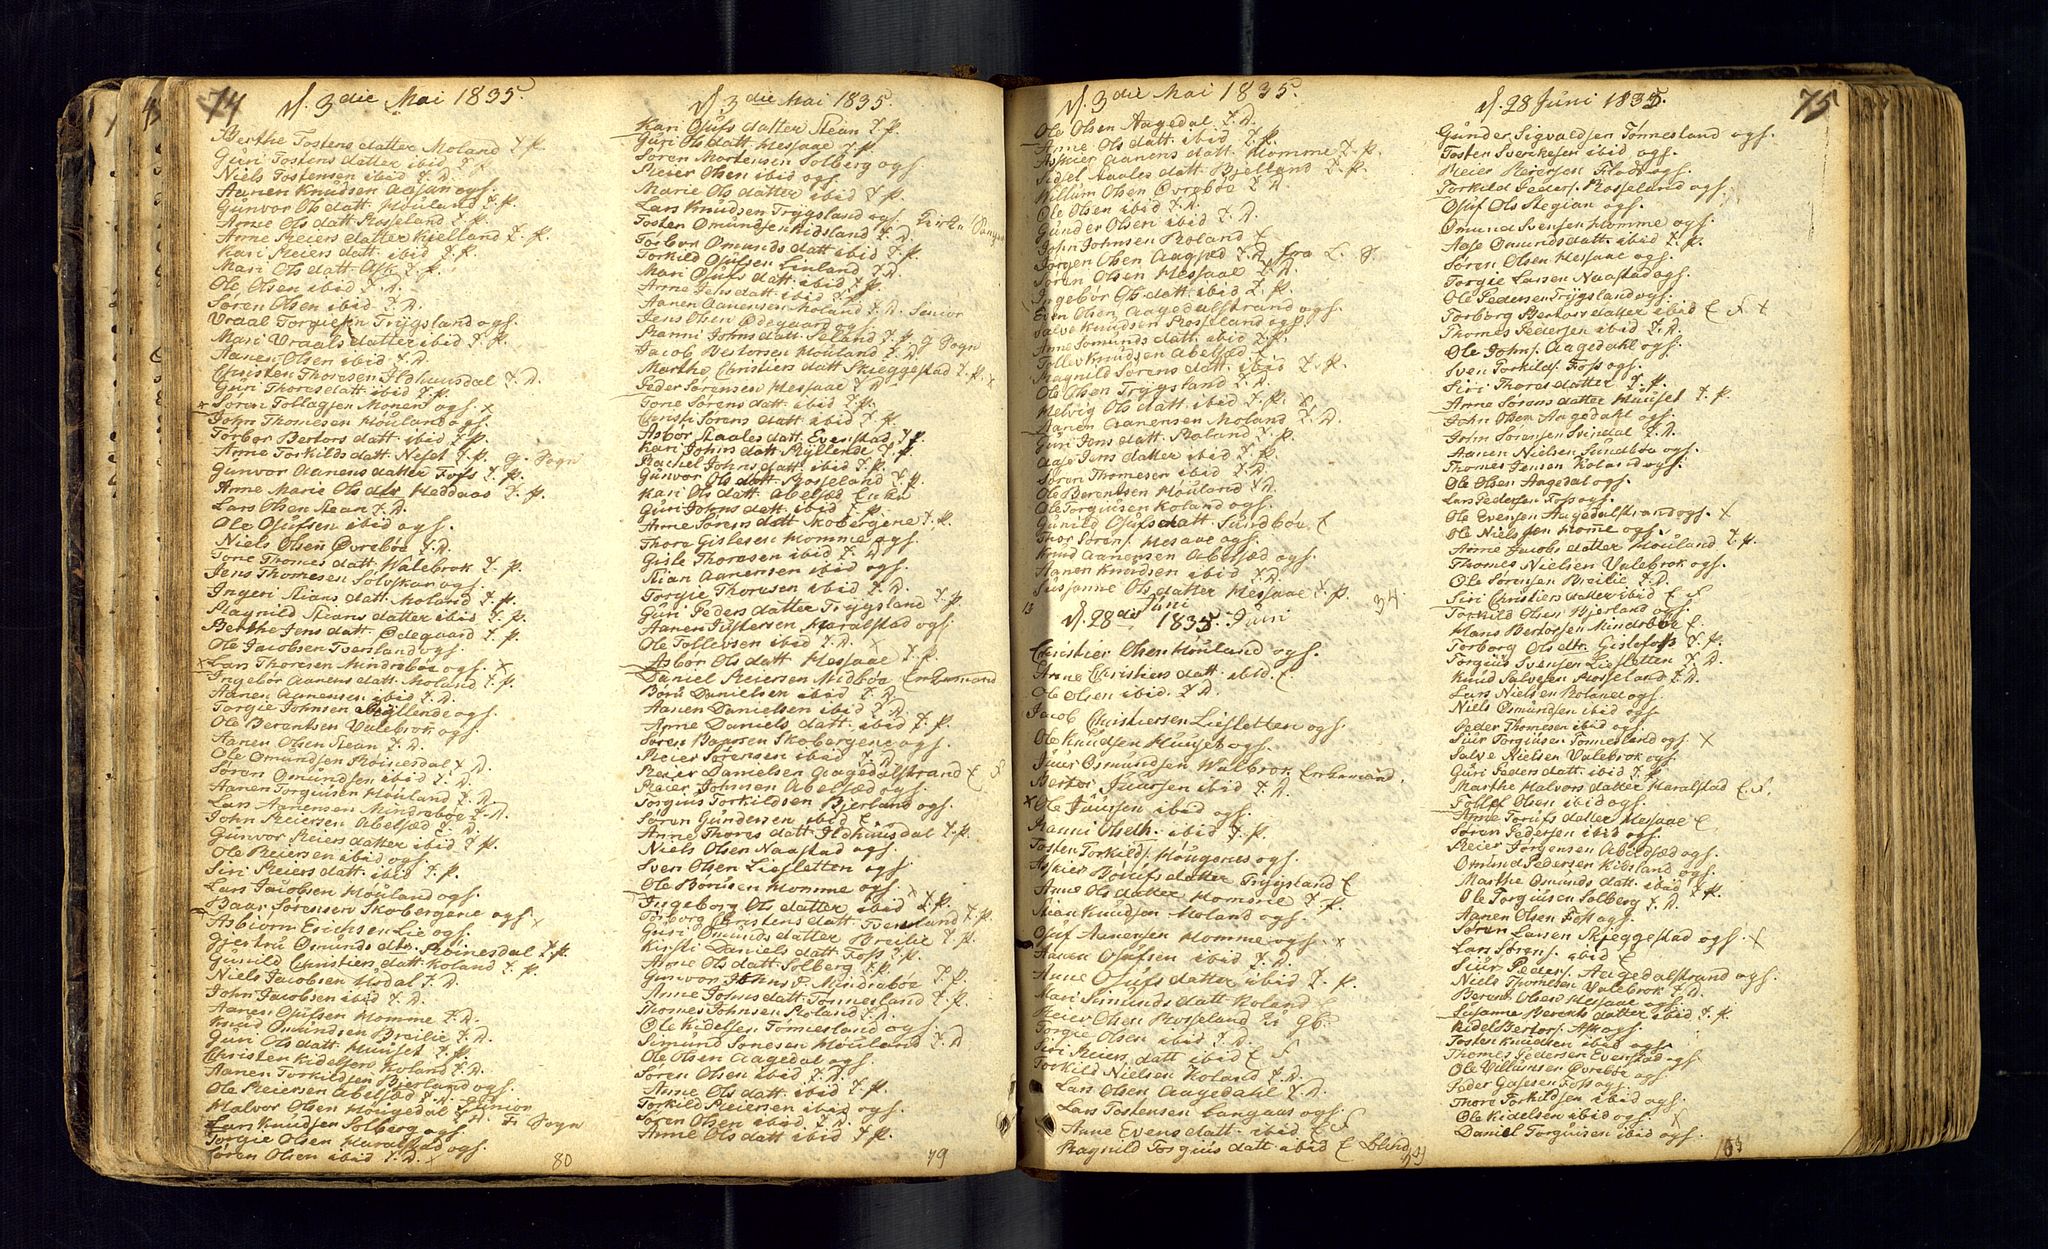 74
d. 3die Mai 1835.
Berthe Tostens datter Moland T. P.
Guri Tostens datter ibid T. P.
Niels Tostensen ibid T. D.
Aanen Knudsen ogs.
Gunvor Ols datt. Houland T. P.
Anne Ols datt. Rosseland T. P.
Anne Reiers datter Kielland T. P.
Kari Reiers datt. ibid T. P.
Mari Ols datt. T. P.
Ole Olsen ibid T. D.
Søren Olsen ibid T. D.
Vraal Trygsland ogs.
Mari Vraals datter ibid T. P.
Aanen Olsen ibid T. D.
Christen Thoresen Ildhuusdal T. D.
Guri Thores datt. ibid T. P.
Søren Monen ogs. x
John Thomesen Houland ogs.
Torbor Bertors datt. ibid T. P.
Anne Torkilds datt. Neset T. P. G. Sogn
Gunvor Aanens datter Foss T. P.
Anne Marie Ols dtr Heddaas T. P.
Lars Olsen Stean T. D.
Ole Olufsen ibid ogs.
Niels Olsen Øvrebøe T. D.
Tone Thomes datt. Walebrok T. P.
Jens Thomesen ogs.
Ingeri Stians datt. Moland T. P.
Ragnild Steans datter ibid T. P.
Berthe Jens datt. Ødegaard T. P.
Ole Jacobsen Tversland ogs.
x Lars Thoresen Mindrebøe ogs. x
Ingebor Aanens datt. Moland T. P.
Aanen Aanensen ibid T. D.
Torgie Johnsen Ryllende ogs.
Ole Berentsen Valebrok ogs.
Aanen Olsen Stean T. D.
Ole Omundsen Roinesdal T. D.
Søren Omundsen ibid T. D.
Aanen Torguisen Houland T. D.
Lars Aanensen Mindrebøe T. D.
John Reiersen Abelsæd E. D.
Gunvor Reiers datter ibid T. P.
Ole Reiersen ibid ogs.
Siri Reiers datt. ibid T. P.
Lars Jacobsen Houland ogs.
Baar Sørensen Skobergene ogs. x
Asbiørn Erichsen Lie ogs.
Omunds dtr. Roinesdal T. P.
Gunild Christiens datt. Koland T. P.
Niels Jacobsen T. D.
John Jacobsen ibid T. D.
Aanen Olufsen Homme T. D.
Knud Omundsen Breilie T. D.
Guri Ols datt. Hunset T. P.
Christen Kidelsen Koland T. D.
Aanen Torkildsen Bjerland ogs.
Ole Reiersen Abelsæd T. D. Junior
Halvor Olsen Hougedal T. D. Fi. Sogn
Lars Knudsen Solberg ogs.
Torgie Olsen Haralstad ogs.
Søren Olsen ibid T. D. x
80
d. 3die Mai 1835.
Kari Olufs datter Stean T. P.
Guri Ols datt. Messaae T. P.
Søren Mortensen Solberg ogs.
Reier Olsen ibid ogs.
Marie Ols datter ibid T. P.
Lars Knudsen Trygsland ogs.
Tosten Omundsen Kidsland T. D.
Torbor Omunds datt. ibid T. P.
Torkild Olufsen Linland T. D.
Mari Olufs datt. ibid T. P.
Anne Jens datt. ibid T. P.
Aanen Aanensen Moland T. D. Senior
Jens Olsen Ødegaard ogs.
Ranni Johns datt. Seland T. P. G Sogn
Jacob Houland T. D.
Marthe Christiens datt Skieggestad T. P. x
Peder Sørensen Messaae T. D.
Tone Sørens datt. ibid T. P.
Christi Sørens datt. ibid T. P.
Asbor Staales datt. Evenstad T. P.
Kari Johns datt. Ryllende T. P.
Rachel Johns datt. ibid T. P.
Gunvor Ols datt. Rosseland T. P.
Kari Ols datt. Abelsæd Enke
Guri Johns datt. ibid T. P.
Anne Sørens datt Skobergene T. P.
Thore Gislesen Homme ogs.
Gisle Thoresen ibid ogs.
Stian Aanensen ibid ogs.
Torgie Thoresen ibid T. D.
Guri Peders datter Trygsland T. P.
Aanen Haralstad ogs.
Ole Tollevsen ibid T. D. x
Asbor Ols datt Messaae T. P.
Daniel Reiersen Midbøe Enkemand
Boru Danielsen ibid T. D.
Aanen Danielsen ibid T. D.
Anne Daniels datt. ibid T. P.
Søren Baarsen Skobergene ogs.
Reier Sørensen ibid T. D.
Reier Danielsen Aagedalstrand E F
Reier Johnsen Abelsæd ogs.
Torguis Torkildsen Bjerland ogs.
Søren Gundersen ibid E.
Anne Thores datt Ildhuusdal T. P.
Niels Olsen Naastad ogs.
Sven Olsen Liefletten ogs
Ole Borusen Homme ogs.
Ingeborg Ols datter ibid T. P.
Torborg Christens datt. Tversland T. P.
Guri Omunds datter Breilie T. P.
Kirsti Daniels datt Foss T. P.
Anne Ols datt Solberg T. P.
Gunvor Johns d. Mindrebøe T. P.
Anne Johns datt. Tonnesland T. P.
Thomes Johnsen Roland T. D.
Ole Kidelsen Tonnesland ogs.
Simund Houland T. D
Ole Olsen Aagedal ogs.
Søren Olsen ibid T. D.
Anne Ols datt. ibid T. P.
Torkild Reiersen ibid ogs.
Søren Olsen ibid T. D.
Anne Ols datt ibid T. P.
79
d. 3die Mai 1835.
Ole Olsen Aagedal T. D.
Anne Ols datt. ibid T. P.
Askier Aanens datt. Homme T. P.
Sidsel Aasles datt Bjelland T. P.
Willum Olsen Øvrebøe T. D.
Ole Olsen ibid T. D.
Gunder Olsen ibid T. D.
John Johnsen Roland E
Jørgen Olsen T. D. fra L. S
Søren Olsen Messaae T. D.
Ingebor Ols datt. ibid T. P.
Even Olsen Aagedalstrand ogs.
Salve Knudsen Rosseland ogs
Anne Somunds datt. ibid T. P.
Tollev Knudsen Abelsæd E
Ragnild Sørens datt. ibid T. P.
Ole Olsen Trygsland T. D.
Helvig Ols datt. ibid T. P. x
Aanen Aanensen Moland T. D.
Guri Jens datt. Roland T. P.
Aase Jens datter ibid T. P.
Søren Thomesen ibid T. D.
Ole Berentsen Houland T. D.
Ole Torguisen Koland ogs.
Gunild Olufs datt. Sundbøe. E
Thor Sørens. Messaae ogs.
Knud Aanensen Abelsæd ogs.
Aanen Knudsen ibid T. D.
Susanne Ols datter Messaae T. P. 34.
13
Juni
d. 28de 1835. Juni
Christier Olsen Houland ogs.
Anne Christiens datt. ibid. E
Ole Olsen ibid. T. D
Jacob Christiersen Liefletten ogs.
Ole Knudsen Hunset ogs.
Juur Osmundsen Walbrok Enkemand.
Bertor Juursen ibid T. D.
x Ole Juursen ibid ogs
Ranni Ols dtr. ibid T. P.
Tosten Torkilds. Hougenes ogs.
Askier datter Trygsland E
Anne Ols datter Homme T. P.
Stian Knudsen Moland ogs.
Oluf Aanensen Homme ogs. x
Aanen Olufsen ibid T. D.
Anne Olufs datter ibid T. P.
Mari Simunds datt Koland E
Reier Olsen Rosseland
Torgie Olsen ibid T. D.
Siri Reiers datt ibid E F
Torkild Nielsen Koland T. D.
Lars Olsen Aagedahl T. D.
Lars Tostensen Langaas ogs.
Anne Evens datt. ibid E F
Ragnild Torguis datt ibid E Blind
d. 28 Juni 1835.
75
Gunder Sigvaldsen Tønnesland ogs.
Tosten Sverikesen ibid ogs.
Reier Reiersen Flode ogs.
Torkild Peders. Rosseland ogs
Oluf Ols Stegian ogs.
Omund Svensen Homme ogs.
Aase Omunds datt. ibid T. P.
Søren Olsen Messaae ogs.
Torgie Larsen Naastad ogs.
Ole Pedersen Trygsland ogs.
Torborg Bertors datter ibid E F +
Thomes Pedersen ibid T. D.
Ole Johns. Aagedahl ogs.
Sven Torkilds. Foss ogs.
Siri Thores datter T. P.
Anne Sørens datter Hunset T. P.
John Olsen Aagedahl ogs.
John Sørensen Svindal T. D.
Aanen Nielsen Sundbøe ogs.
Thomes Jensen Koland ogs.
Ole Olsen Aagedal ogs.
Lars Pedersen Foss ogs.
Ole Evensen Aagedalstrand ogs. x
Ole Nielssen Home ogs.
Anne Jacobs datter Houland T. P.
Thomes Nielsen Valebrok ogs.
Ole Sørensen Breilie T. D.
Siri Christiens datter ibid E F
Torkild Olsen Bjerland ogs.
Hans Bertorsen Mindrebøe E.
Torborg Ols dtr. Gislefoss T. P.
Torguus Svensen Liefletten T. D.
Knud Salvesen Rosseland T. D.
Lars Nielsen Roland ogs.
Niels Osmundsen ibid ogs.
Peder Thomesen ibid ogs.
Siur Torguisen Tonnesland ogs x
Salve Nielsen Valebrok ogs.
Guri Peders datt. ibid T. P.
Marthe Halvors datter Haralstad E. F.
Tollef Olsen ibid ogs.
Anne datter Messaae E
Søren Pedersen ibid ogs.
Reier Jørgensen Abildsæd ogs.
Omund Pedersen Kidsland ogs.
Marthe Omunds datt. ibid T. P.
Ole Torguisen Solberg T. D.
Aanen Olsen Foss ogs.
Søren Larsen Skjeggestad ogs. x
Lars Sørens. ibid E
Siur Peders. Aagedalstrand ogs.
Niels Thomesen Valebrok T. D.
Berent Olsen Messaae ogs.
Susanne Berents datter ibid T. P.
Kidel Bertors. Ask ogs.
Tosten Knudsen ibid ogs.
Thomes Pedersen Evenstad ogs.
Ole Villumsen Øvrebøe ogs
Peder Foss ogs.
Thore Torkildsen ibid ogs.
Ole Kidelsen ibid ogs.
Daniel Torguisen ibid ogs.